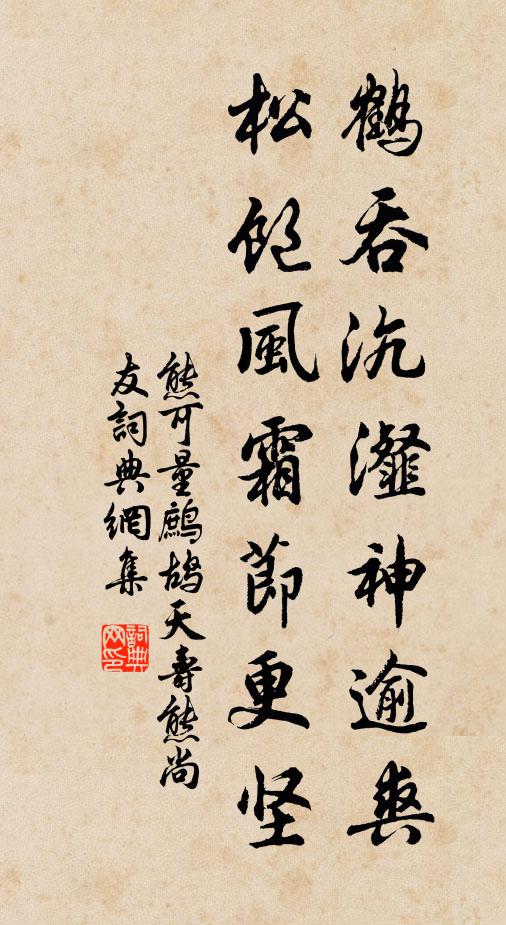 鶴吞沆瀣神逾爽
松飽風霜節更坚
熊可量鷓鴣天壽熊尚
友詞典網集
詞典
网印